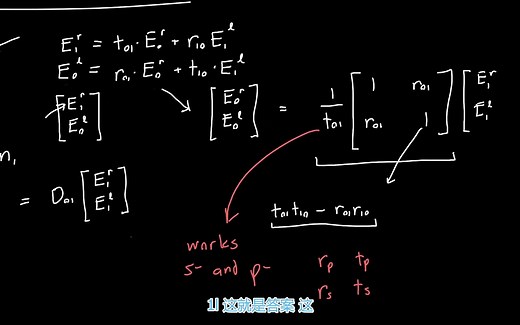 E₁ʳ = t₀₁·E₀ʳ + r₁₀E₁ˡ
E₀ˡ = r₀₁·E₀ʳ + t₁₀·E₁ˡ
[E₁ʳ E₀ˡ] [E₀ʳ E₀ˡ] = 1/t₀₁ [1 r₀₁ r₀₁ 1] [E₁ʳ E₁ˡ]
n₁
= D₀₁ [E₁ʳ E₁ˡ]
t₀₁t₁₀ - r₀₁r₁₀
works
s- and p-
rₚ tₚ
rₛ tₛ
1l 这就是答案 这